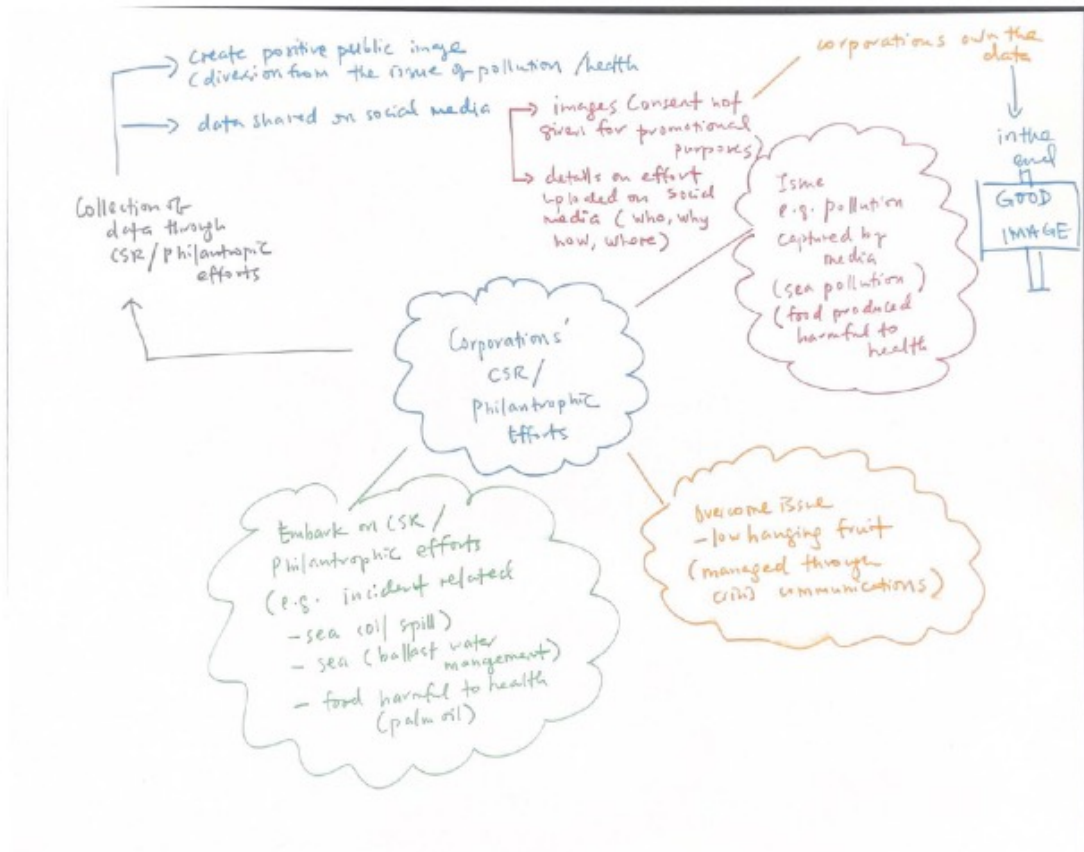 create positive public image
(diversion from the issue of pollution /health
data shared on social media
images Consent not
given for promotional
purposes)
details on effort
uploaded on social
media (who, why
how, where)
corporations own the
data
in the
end
GOOD
IMAGE
Collection of
data through
CSR/Philantropic
efforts
Issue
e.g. pollution
captured by
media
(sea pollution)
(food produced
harmful to
health
Corporations'
CSR/
Philantrophic
Efforts
Embark on CSR/
Philantrophic efforts
(e.g. incident related
- sea (oil spill)
- sea (ballast water
mangement)
- food harmful to health
(palm oil)
Overcome issue
- low hanging fruit
(managed through
crisis communications)